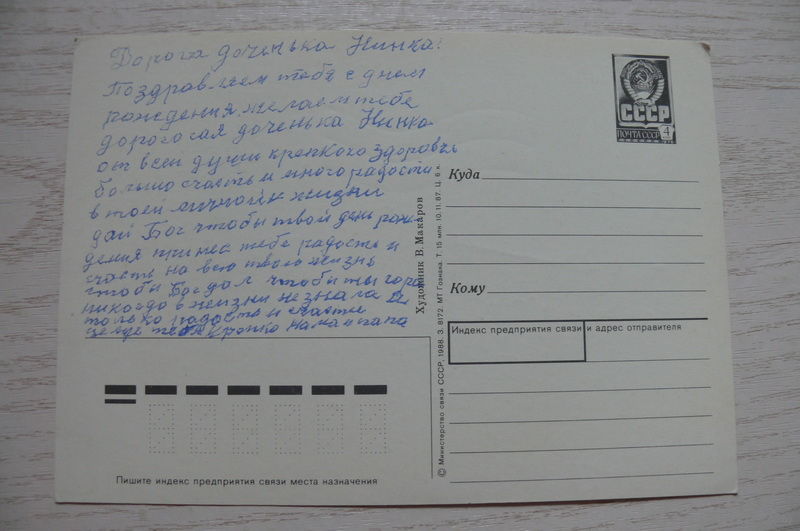 Дорога доченька Нинка!
Поздравляем тебя с днем
рождения желаем тебе
дорогосая доченька Нинка
от всеи души крепкого здоровья
большо счасть и много радости
в твоей личной жизни
дай Бог чтобы твой день рож-
дения принес тебе радость и
счасть на всю твою жизнь
чтобы Бог дал чтобы ты горя
никогдо в жизни не знала а
только радость и счастье
целуе тебя крепко мама и папа
СССР
ПОЧТА СССР 4
Куда
Кому
Индекс предприятия связи и адрес отправителя
Художник В. Макаров
© Министерство связи СССР, 1988. З. 8172. МТ Гознака. Т. 15 млн. 10.11.87. Ц. 6 к.
Пишите индекс предприятия связи места назначения